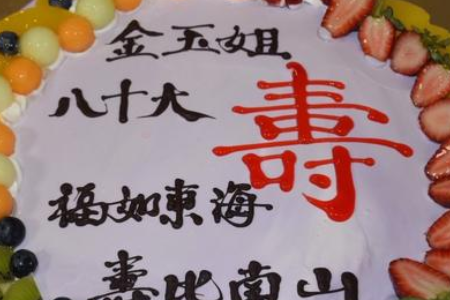 金玉姐
八十大
壽
福如東海
壽比南山